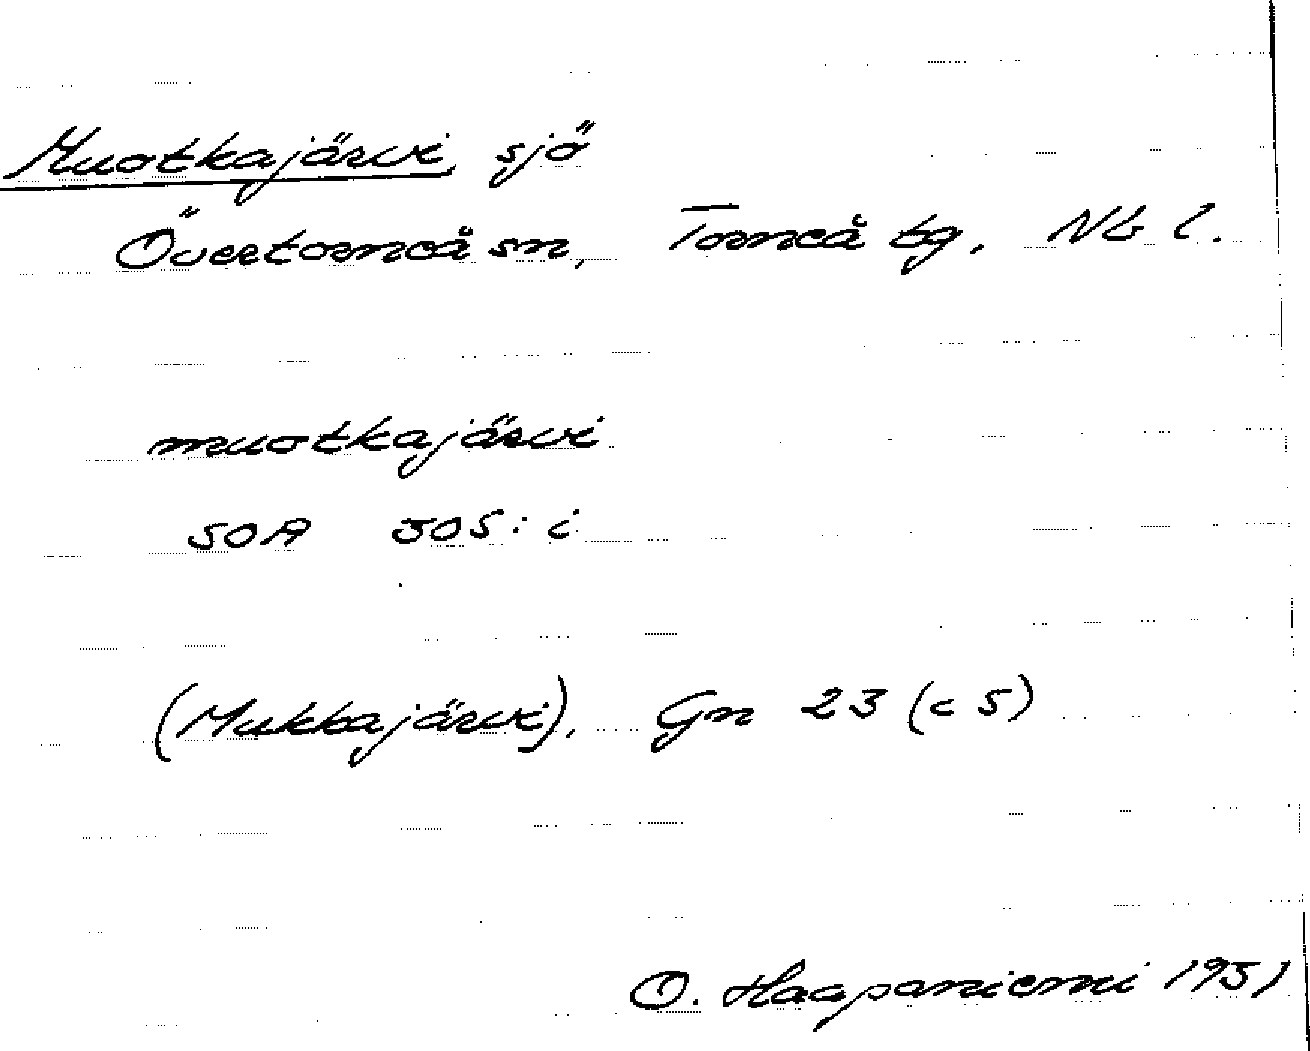 Muotkajärvi, sjö
Övertorneå sn, Torneå tg, Nb l.
muotkajärvi
SOA 505: i
(Mukkajärvi), Gn 23 (c 5)
O. Haapaniemi 1951